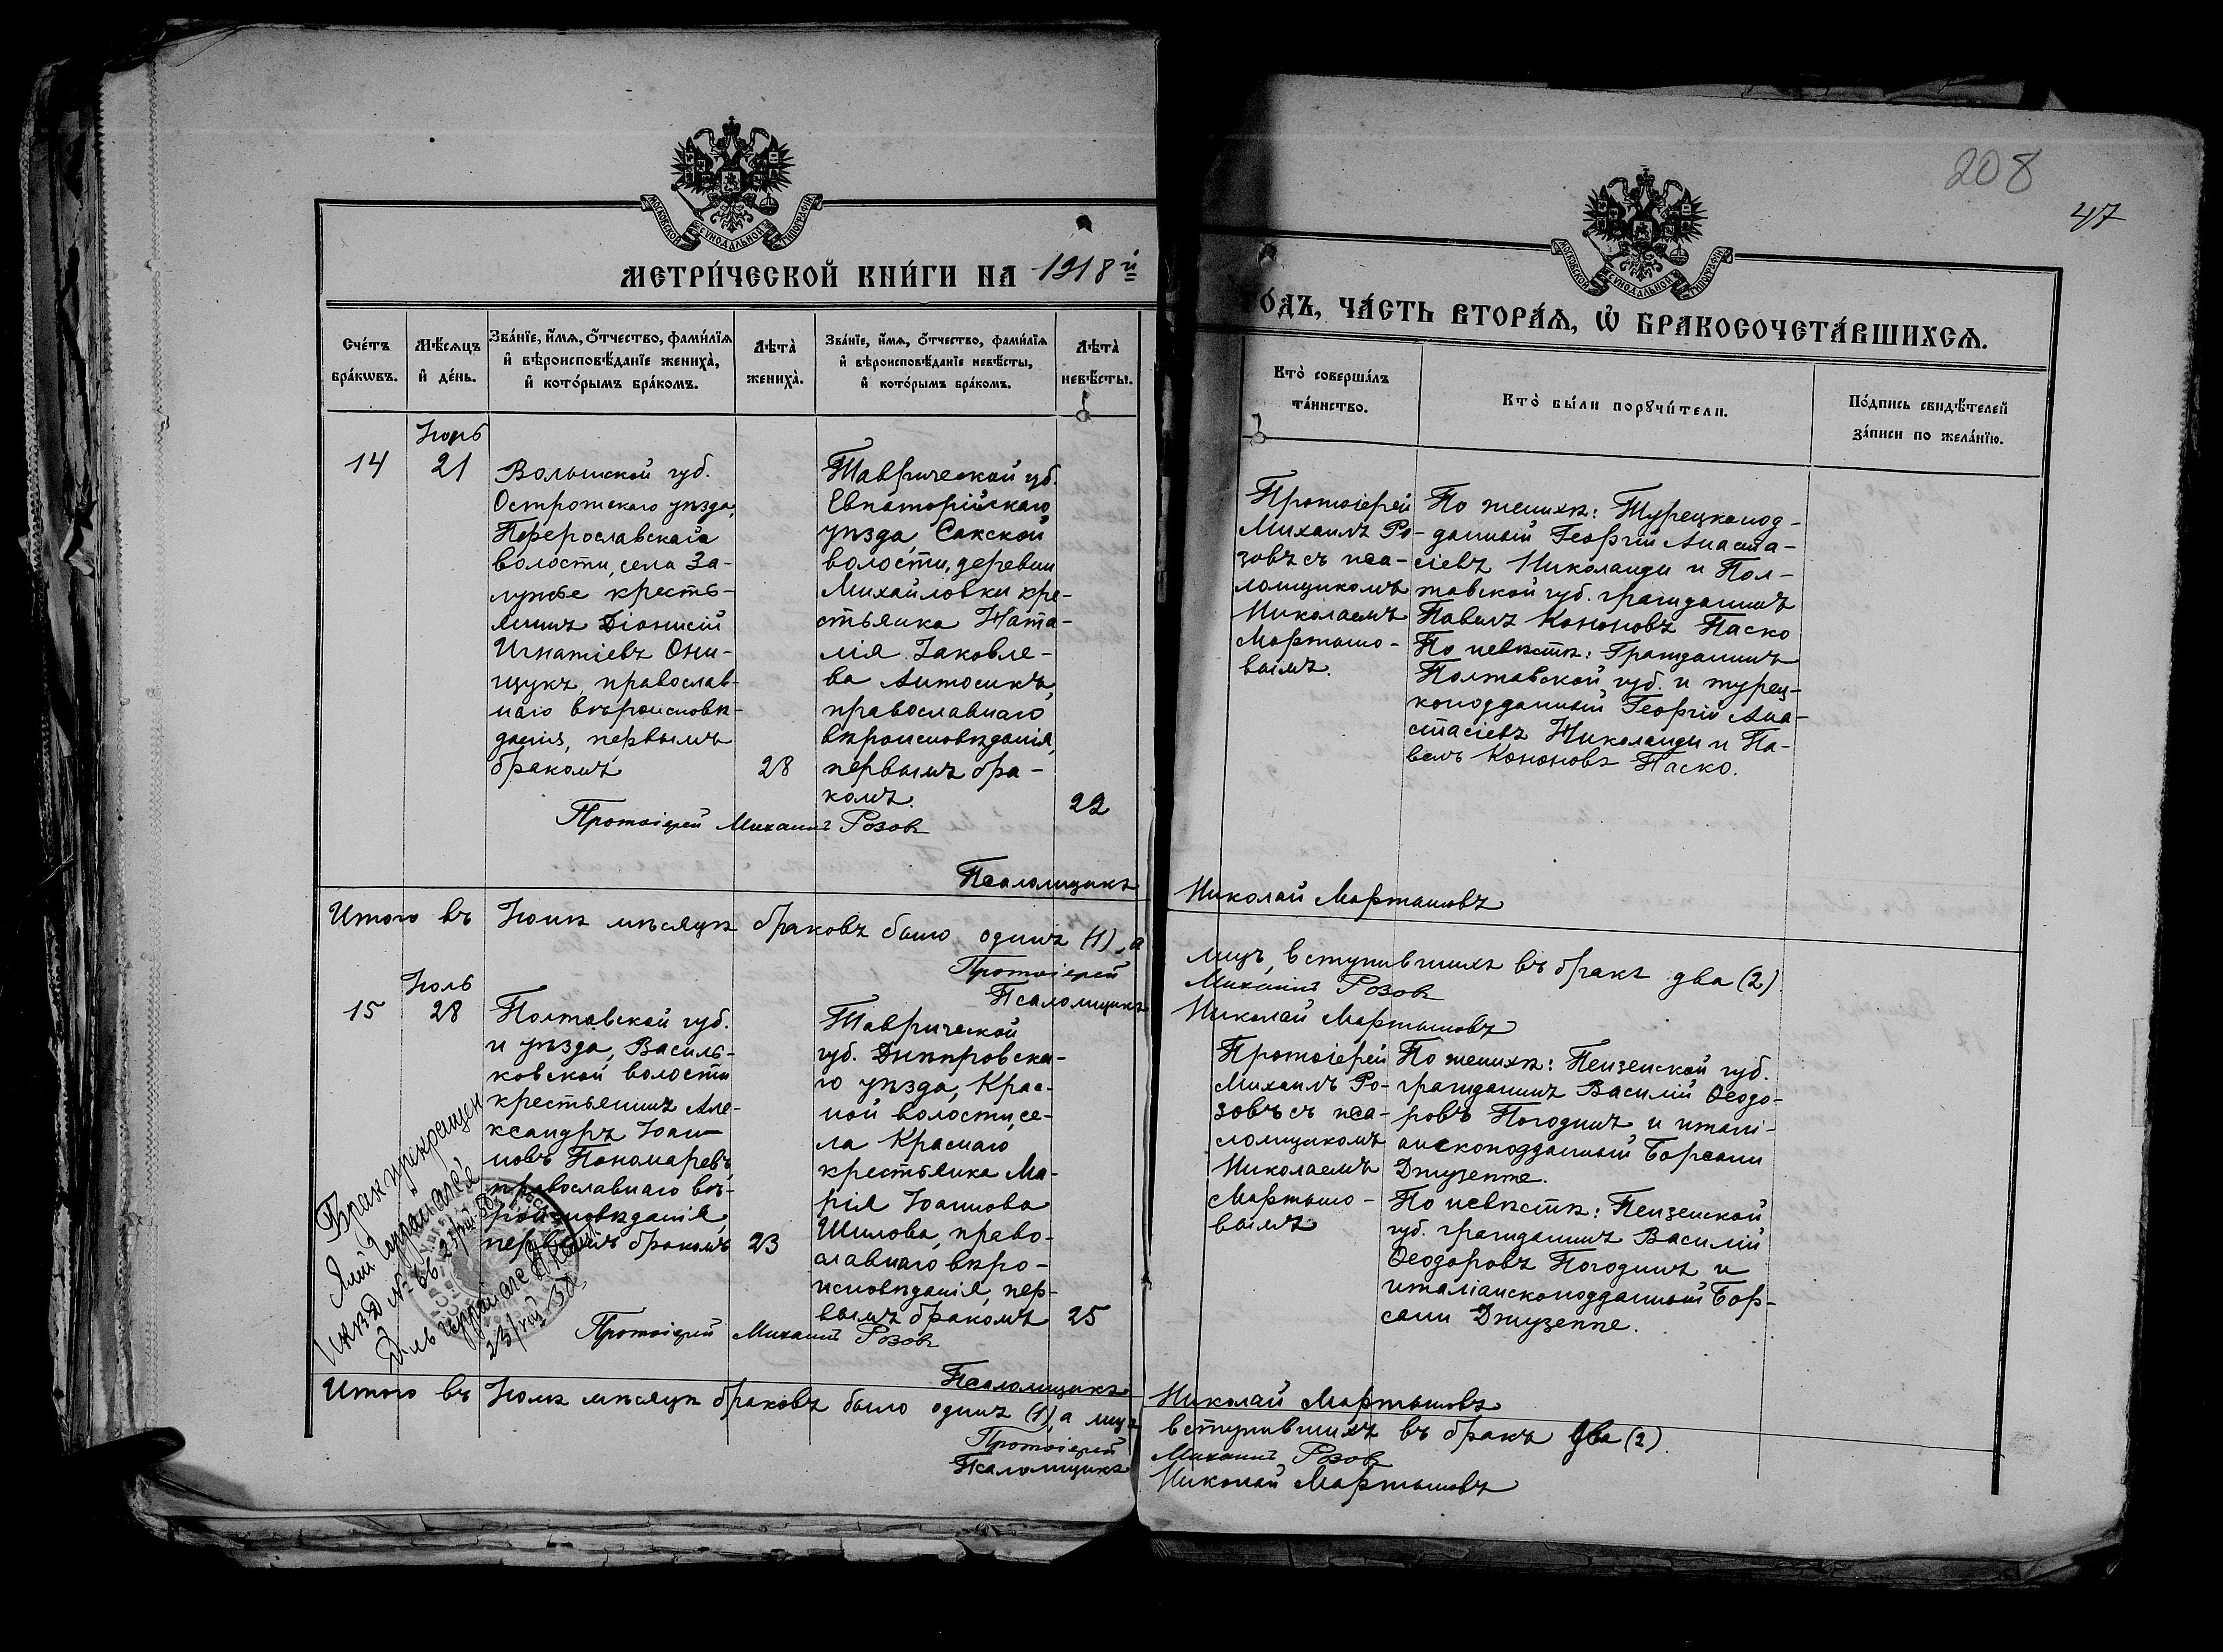 208
47
МОСКОВСКОЙ СѴНОДАЛЬНОЙ ТИПОГРАФІИ
МОСКОВСКОЙ СѴНОДАЛЬНОЙ ТИПОГРАФІИ
МЕТРИ́ЧЕСКОЙ КНИ́ГИ НА 1918 й
ГО́ДЪ, ЧА́СТЬ ВТОРА́Ѧ, Ѽ БРАКОСОЧЕТА́ВШИХСѦ.
Сче́тъ
бра́кѡвъ.
Мѣ́сѧцъ
и҆ де́нь.
Зва́нїе, и҆́мѧ, ѻ҆́тчество, фами́лїѧ
и҆ вѣроисповѣ́данїе жениха̀,
и҆ кото́рымъ бра́комъ.
Лѣта̀
жениха̀.
Зва́нїе, и҆́мѧ, ѻ҆́тчество, фами́лїѧ
и҆ вѣроисповѣ́данїе невѣ́сты,
и҆ кото́рымъ бра́комъ.
Лѣта̀
невѣ́сты.
Кто̀ соверша́лъ
та́инство.
Кто̀ бы́ли порꙋчи́тели.
По́дпись свидѣ́телей
за́писи по жела́нїю.
14
Іюнь
21
Волынской губ.
Острожскаго уѣзда,
волости, села За-
лужье кресть-
янинъ Діонисій
Игнатіевъ Они-
щукъ, православ-
наго вѣроисповѣ-
данія, первымъ
бракомъ
28
Таврической губ.
Евпаторійскаго
уѣзда, Сакской
волости, деревни
Михайловки кре-
стьянка Ната-
лія Іаковле-
ва Антосикъ,
православнаго
вѣроисповѣданія,
первымъ бра-
комъ.
22
Протоіерей
Михаилъ Ро-
зовъ съ пса-
ломщикомъ
Николаемъ
Мартыно-
вымъ.
По женихѣ: Турецкопод-
данный Георгій Анаста-
сіевъ Николаиди и Пол-
тавской губ. гражданинъ
Павелъ Кононовъ Паско
По невѣстѣ: Гражданинъ
Полтавской губ. и турец-
коподданный Георгій Ана-
стасіевъ Николаиди и Па-
велъ Кононовъ Паско.
Протоіерей Михаилъ Розовъ
Псаломщикъ Николай Мартыновъ
Итого въ Іюнѣ мѣсяцѣ браковъ было одинъ (1), а лицъ, вступившихъ въ бракъ два (2)
Протоіерей Михаилъ Розовъ
Псаломщикъ Николай Мартыновъ
15
Іюль
28
Полтавской губ.
и уѣзда, Василь-
ковской волости
крестьянинъ Але-
ксандръ Іоан-
новъ Пономаревъ,
православнаго вѣ-
роисповѣданія,
первымъ бракомъ
23
Таврической
губ. Днѣпровска-
го уѣзда, Крас-
ной волости, се-
ла Краснаго
крестьянка Ма-
рія Іоаннова
Шилова, право-
славнаго вѣро-
исповѣданія, пер-
вымъ бракомъ
25
Протоіерей
Михаилъ Ро-
зовъ съ пса-
ломщикомъ
Николаемъ
Мартыно-
вымъ
По женихѣ: Пензенской губ.
гражданинъ Василій Ѳеодо-
ровъ Погодинъ и италі-
анскоподданный Борсани
Джузеппе.
По невѣстѣ: Пензенской
губ. гражданинъ Василій
Ѳеодоровъ Погодинъ и
италіанскоподданный Бор-
сани Джузеппе.
Брак прекращен
№ 66
Протоіерей Михаилъ Розовъ
Псаломщикъ Николай Мартыновъ
Итого въ Іюлѣ мѣсяцѣ браковъ было одинъ (1), а лицъ вступившихъ въ бракъ два (2).
Протоіерей Михаилъ Розовъ
Псаломщикъ Николай Мартыновъ